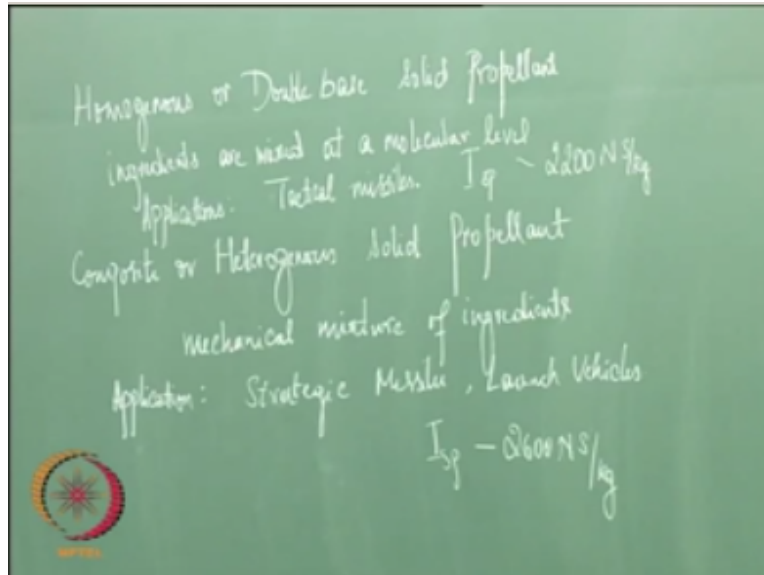 Homogenous or Double base Solid Propellant
ingredients are mixed at a molecular level
Applications: Tactical missiles. Isp ~ 2200 NS/kg
Composite or Heterogenous Solid Propellant
mechanical mixture of ingredients
Application: Strategic Missiles, Launch Vehicles
Isp - 2600 NS/kg
NPTEL